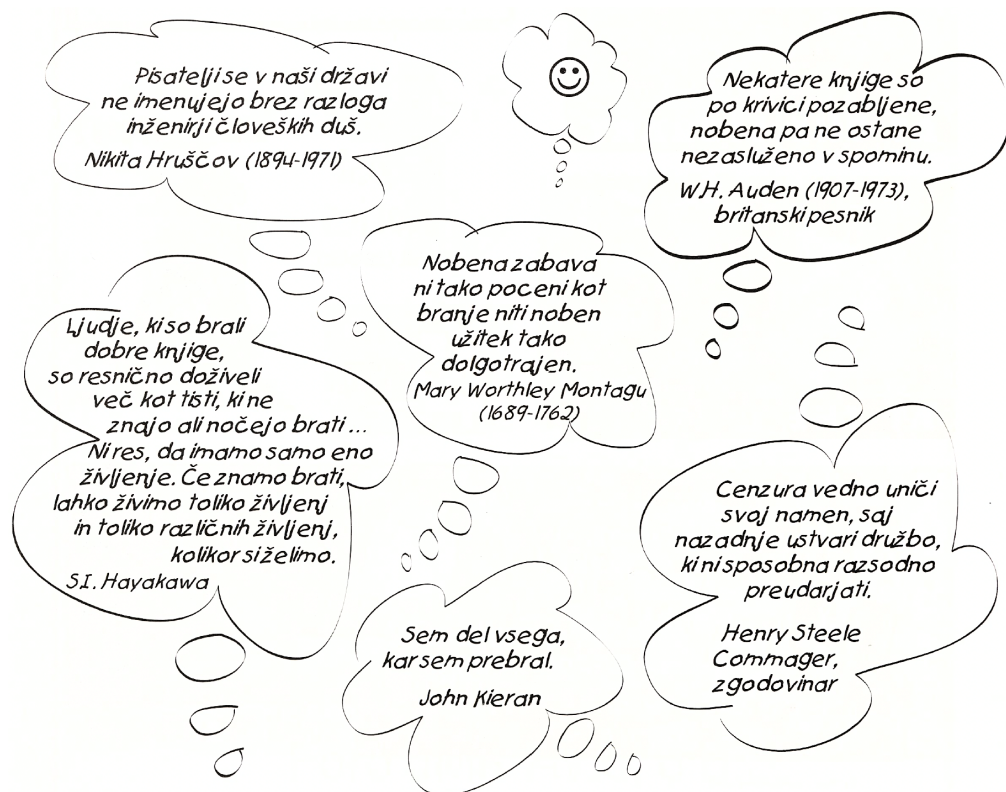 Pisatelji se v naši državi
ne imenujejo brez razloga
inženirji človeških duš.
Nikita Hruščov (1894-1971)
Nekatere knjige so
po krivici pozabljene,
nobena pa ne ostane
nezasluženo v spominu.
W.H. Auden (1907-1973),
britanski pesnik
Nobena zabava
ni tako poceni kot
branje niti noben
užitek tako
dolgotrajen.
Mary Worthley Montagu
(1689-1762)
Ljudje, ki so brali
dobre knjige,
so resnično doživeli
več kot tisti, ki ne
znajo ali nočejo brati...
Ni res, da imamo samo eno
življenje. Če znamo brati,
lahko živimo toliko življenj
in toliko različnih življenj,
kolikor si želimo.
S.I. Hayakawa
Cenzura vedno uniči
svoj namen, saj
nazadnje ustvari družbo,
ki ni sposobna razsodno
preudarjati.
Henry Steele
Commager,
zgodovinar
Sem del vsega,
kar sem prebral.
John Kieran